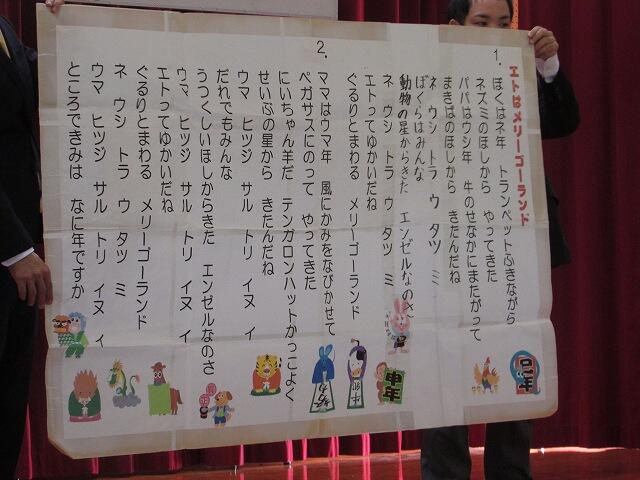 エトはメリーゴーランド
1.
ぼくはネ年 トランペットふきながら
ネズミのほしから やってきた
パパはウシ年 牛のせなかにまたがって
まきばのほしから きたんだね
ネ ウシ トラ ウ タツ ミ
ぼくらはみんな
動物の星からきた エンゼルなのさ
ネ ウシ トラ ウ タツ ミ
エトってゆかいだね
ぐるりとまわる メリーゴーランド
2.
ママはウマ年 風にかみをなびかせて
ペガサスにのって やってきた
にいちゃん羊だ テンガロンハットかっこよく
せいぶの星から きたんだね
ウマ ヒツジ サル トリ イヌ イ
だれでもみんな
うつくしいほしからきた エンゼルなのさ
ウマ ヒツジ サル トリ イヌ イ
エトってゆかいだね
ぐるりとまわる メリーゴーランド
ネ ウシ トラ ウ タツ ミ
ウマ ヒツジ サル トリ イヌ イ
ところできみは なに年ですか
申年